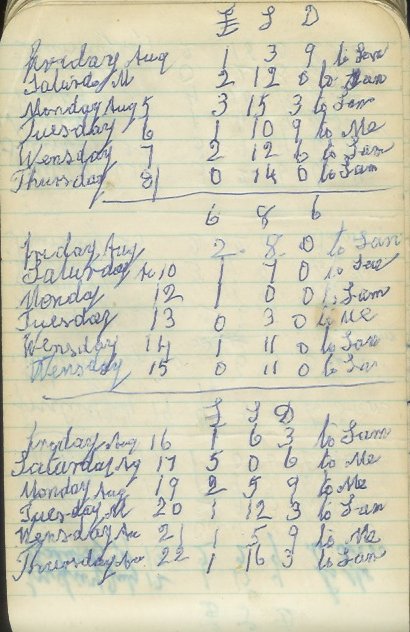 £ S D
Friday Aug 1 3 9 to Sam
Saturda 2 12 0 to Sam
Monday Aug 5 3 15 3 to Sam
Tuesday 6 1 10 9 to Me
Wensday 7 2 12 6 to Sam
Thursday 8 0 14 0 to Sam
6 8 6
Friday Aug 2 8 0 to Sam
Saturday 10 1 7 0 to
Monday 12 1 0 0 to Sam
Tuesday 13 0 3 0 to Me
Wensday 14 1 11 0 to Sam
Wensday 15 0 11 0 to
£ S D
Friday Aug 16 1 6 3 to Sam
Saturday Ag 17 5 0 6 to Me
Monday Aug 19 2 5 9 to Me
Tuesday 20 1 12 3 to Sam
Wensday Au 21 1 5 9 to Me
Thursday Au 22 1 16 3 to Sam